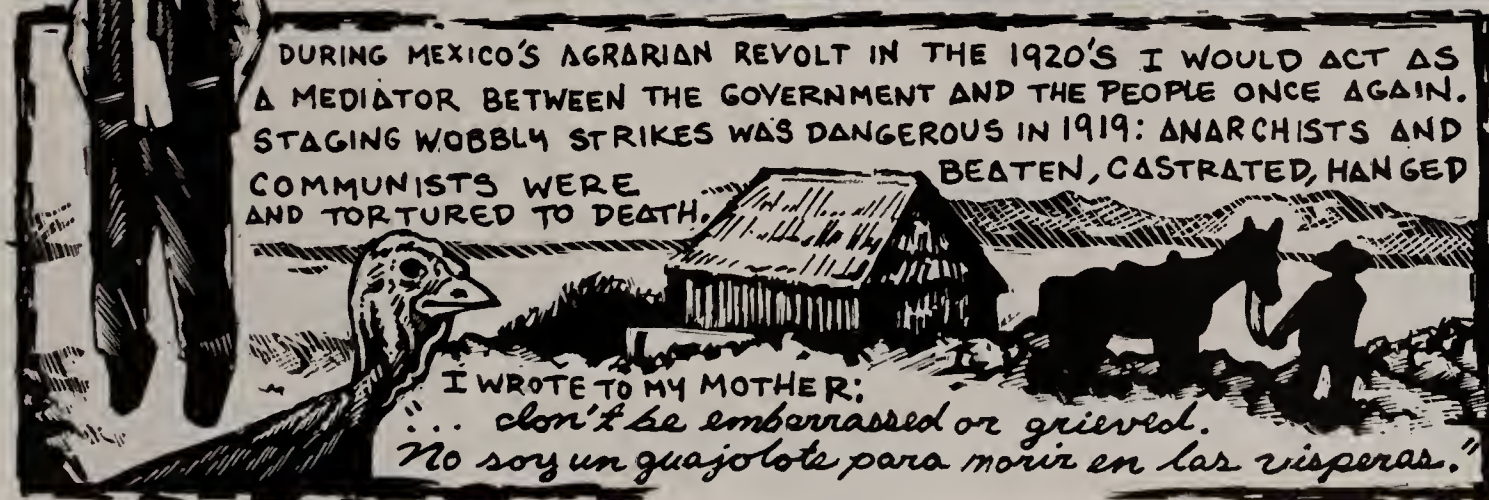 DURING MEXICO'S AGRARIAN REVOLT IN THE 1920'S I WOULD ACT AS
A MEDIATOR BETWEEN THE GOVERNMENT AND THE PEOPLE ONCE AGAIN.
STAGING WOBBLY STRIKES WAS DANGEROUS IN 1919: ANARCHISTS AND
COMMUNISTS WERE BEATEN, CASTRATED, HANGED
AND TORTURED TO DEATH.
I WROTE TO MY MOTHER:
"... don't be embarrassed or grieved.
No soy un guajolote para morir en las vísperas."